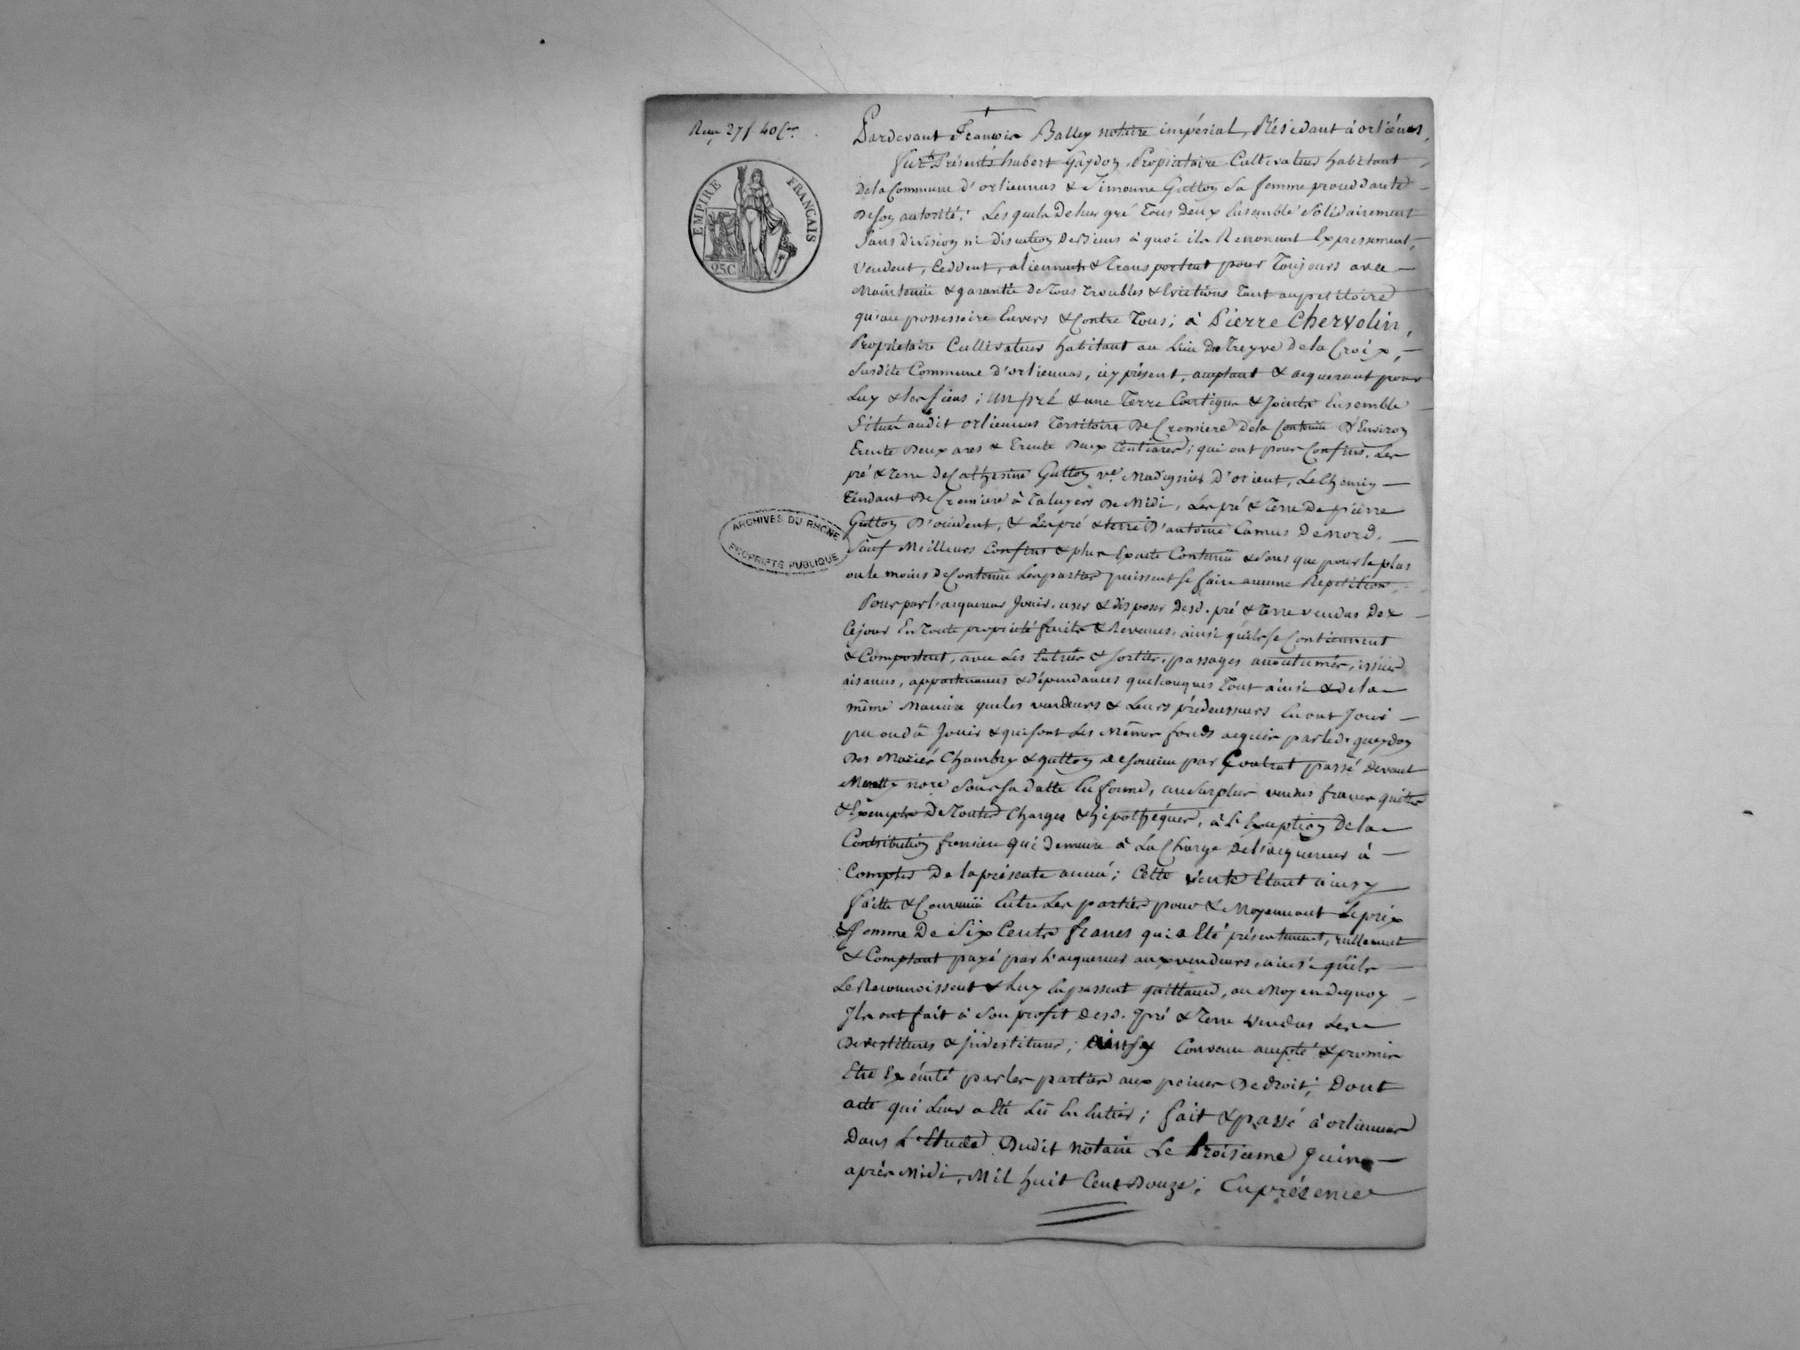 Reçu 27f 40 Cmes
EMPIRE FRANÇAIS
25C
ARCHIVES DU RHONE
PROPRIÉTÉ PUBLIQUE
Pardevant François Balley notaire impérial, Résidant à orliénas,
furt Présents hubert Gaydon, Propietaire Cultivateur habitant
De la Commune d'orliennas & Simonne Gutton Sa femme procedante
De son autorité; Lesquels De leur gré Tous Deux Ensemble Solidairement
Sans division ni discution Dessieus à quoi ils Renoncent Expressement,
Vendent, Ceddent, aliennent & Transportent pour Toujours avec
Maintenüe & garantie De Tous Troubles & Evictions Tant au petitoire
qu'au possessoire Envers & Contre Tous; à Pierre Chervolin,
Propriétaire Cultivateur habitant au Lieu De Treyve de la Croix,
Susdite Commune d'orliennas, icy présent, acceptant & acquerant pour
Luy & les siens; un pré & une Terre Contigue & Joints Ensemble
Situés audit orliennas Territoire De Cremiere de la Contenüe D'Environ
Trente Deux ares & Trente Deux Centiares; qui ont pour Confins. Les
pré & terre de Catherine Gutton ve. Madignier D'orient, Le Chemin
Tendant De Cremiere à Taluyers De Midi, Les pré & Terre De pierre
Gutton D'occident, & Les pré & terre D'antoine Camus De nord.
Sauf Meilleurs Confins & plus Exacte Contenüe & sans que pour le plus
ou le moins de Contenüe Les parties puissent se faire aucune Repetition.
Pour par l'acquereur Jouir, user & disposer desd. pré & terre vendus Dex
Ce jour En Toute propriété fruits & Revenus, ainsi qu'ils se Contiennent
& Comportent, avec Les Entrées & sorties, passages accoutumés, issües
aisances, appartenances & dépendances quelconques Tout ainsi & de la
même Maniere que les vendeurs & Leurs prédecesseurs En ont Joui
pu ou dû Jouir & qui sont Les Mêmes fonds acquis par led. gaydon
Des Mariés Chambry & gutton De par Contrat passé Devant
nore Sous sa datte En forme, au Surplus vendus francs quittes
& Exempts De Toutes Charges & hipothéques, à L'Exception De la
Contribution fonciere qui demeure à La Charge De l'acquereur à
Compter De la présente année; Cette vente Etant ainsy
faitte & Convenüe Entre Les parties pour & Moyennant Le prix
& somme De Six Cents francs qui a Eté présentement, réellement
& Comptant payé par L'acquereur aux vendeurs, ainsi qu'ils
Le Reconnoissent & Luy En passent quittance, au Moyen de quoy
Ils ont fait à Son profit desd. pré & Terre vendus Les
Devestitures & Jnvestitures; ainsy Convenu accepté & promis
Etre Exécuté par les parties aux peines De droit; Dont
acte qui Leur a Eté Lü En Entier; fait & passé à orliennas
Dans L'Etude Dudit notaire Le troisieme Juin
après Midi, Mil huit Cent Douze; En présence